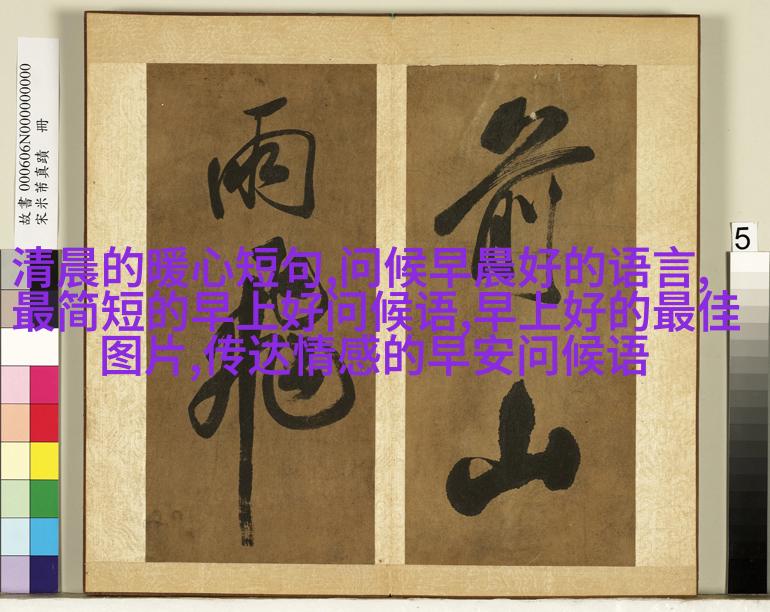 清晨的暖心短句,问候早晨好的语言,
最简短的早上好问候语,早上好的最佳
图片,传达情感的早安问候语
前山
雨飛
故書 000606N000000000
宋米芾真蹟 冊
5